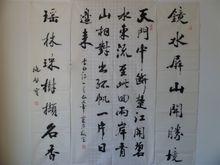 鏡水屏山開勝境
天門中斷楚江開碧
水東流至此回兩岸青
山相對出孤帆一片日
邊來
瑤林珠樹擷名香